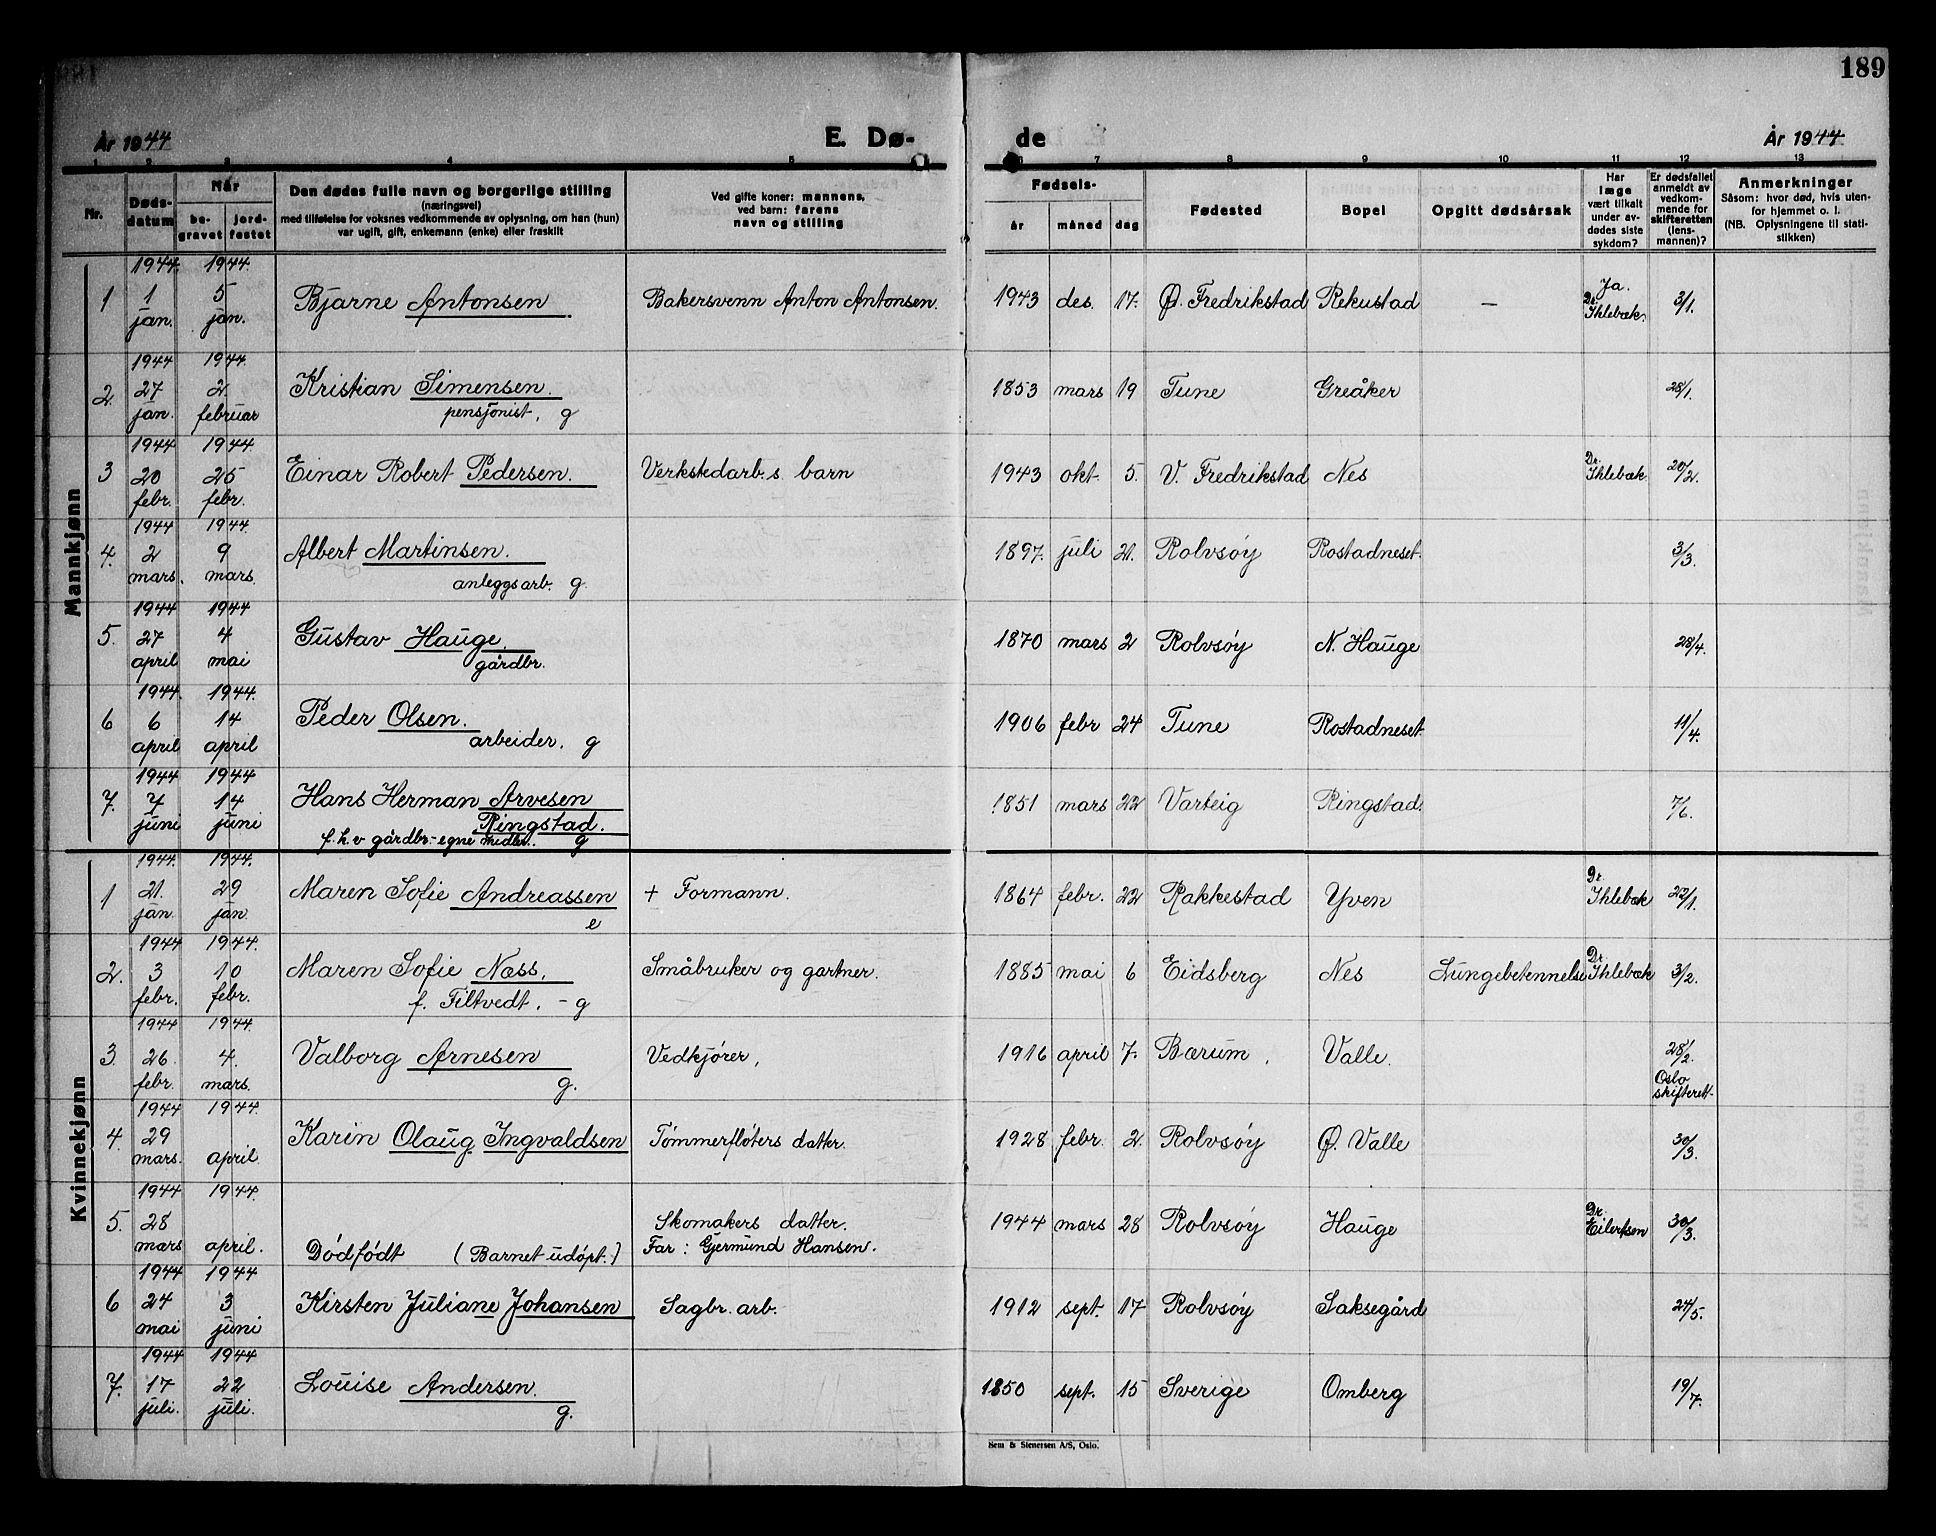 189
År 1944 E. Dø- de År 1944
1 2 3 4 5 6 7 8 9 10 11 12 13
Nr. Dødsdatum Når begravet jordfestet
Den dødes fulle navn og borgerlige stilling
(næringsvei)
med tilføielse for voksnes vedkommende av oplysning, om han (hun)
var ugift, gift, enkemann (enke) eller fraskilt
Ved gifte koner: mannens,
ved barn: farens
navn og stilling
Fødsels- år måned dag
Fødested
Bopel
Opgitt dødsårsak
Har læge vært tilkalt under avdødes siste sykdom?
Er dødsfallet anmeldt av vedkommende for skifteretten (lensmannen)?
Anmerkninger
Såsom: hvor død, hvis utenfor hjemmet o. l.
(NB. Oplysningene til statistikken)
Mannkjønn
1944. 1944.
1 1 jan. 5 jan. Bjarne Antonsen. Bakersvenn Anton Antonsen. 1943 des. 17. Ø. Fredrikstad Rekustad – Ja. Dr. Ihlebæk. 3/1.
1944 1944
2. 27 jan. 2. februar Kristian Simensen. 1853 mars 19 Tune Greåker 28/1.
pensjonist, g
1944 1944
3 20 febr. 25 febr. Einar Robert Pedersen. Verkstedarb.s. barn 1943 okt. 5. V. Fredrikstad Nes Dr. Ihlebæk 20/2.
1944 1944
4. 2 mars. 9 mars. Albert Martinsen. 1897. juli 21. Rolvsøy Rostadneset. 3/3.
anleggsarb. g.
1944 1944
5. 27 april 4 mai Gustav Hauge. 1870 mars 2 Rolvsøy N. Hauge 28/4.
gårdbr.
1944. 1944.
6 6 april 14 april Peder Olsen. 1906 febr 24 Tune Rostadneset 11/4.
arbeider, g
1944 1944
7. 7 juni 14 juni Hans Herman Arvesen 1851 mars 22 Varteig Ringstad. 7/6.
Ringstad.
f.h.v gårdbr.-egne midler. g
Kvinnekjønn
1944. 1944.
1 21. jan. 29 jan. Maren Sofie Andreassen + Formann. 1864 febr. 22 Rakkestad Yven Dr. Ihlebæk 22/1.
e
1944 1944.
2. 3 febr. 10 febr. Maren Sofie Næss, Småbruker og gartner. 1885 mai 6 Eidsberg Nes Lungebetennelse Dr. Ihlebæk 3/2.
f. Tiltvedt, – g
1944 1944.
3 26 febr. 4. mars. Valborg Arnesen Vedkjører, 1916 april 7. Bærum, Valle. 28/2. Oslo skifterett-
g.
1944 1944.
4. 29 mars. april. Karin Olaug Ingvaldsen Tømmerfløters datter. 1928 febr. 2. Rolvsøy Ø. Valle 30/3.
1944 1944.
5. 28 mars april. Dødfødt (Barnet udøpt.) Skomakers datter. 1944 mars 28 Rolvsøy Hauge Dr. Eilertsen 30/3.
Far: Gjermund Hansen.
1944 1944
6 24 mai 3 juni Kirsten Juliane Johansen Sagbr. arb. 1912 sept. 17 Rolvsøy Saksegård 24/5.
1944 1944
7. 17 juli. 22 juli. Louise Andersen. 1850 sept. 15 Sverige Omberg 19/7.
g.
Sem & Stenersen A/S, Oslo.